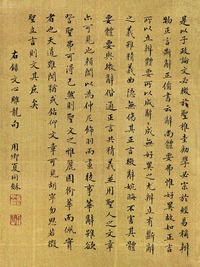 是以子政論文必徵於聖稚圭勸學必宗於經易稱辯
物正言斷辭正備書云辭尚體要弗惟好異故知正言
所以立辯體要可以成辭辭成無好異之尤辯立有斷辭
之義雖精義曲隱無傷其正言微辭婉晦不害其體
要體要與微辭偕通正言共精義並用聖人之文章
亦可見也顏闔以仲尼飾羽而畫徒事華辭雖欲
訾聖弗可得已然則聖文之雅麗固銜華而佩實
者也天道難聞猶或鑽仰文章可見胡寧勿思若徵
聖立言則文其庶矣
右錄文心雕龍句
用卿夏同龢